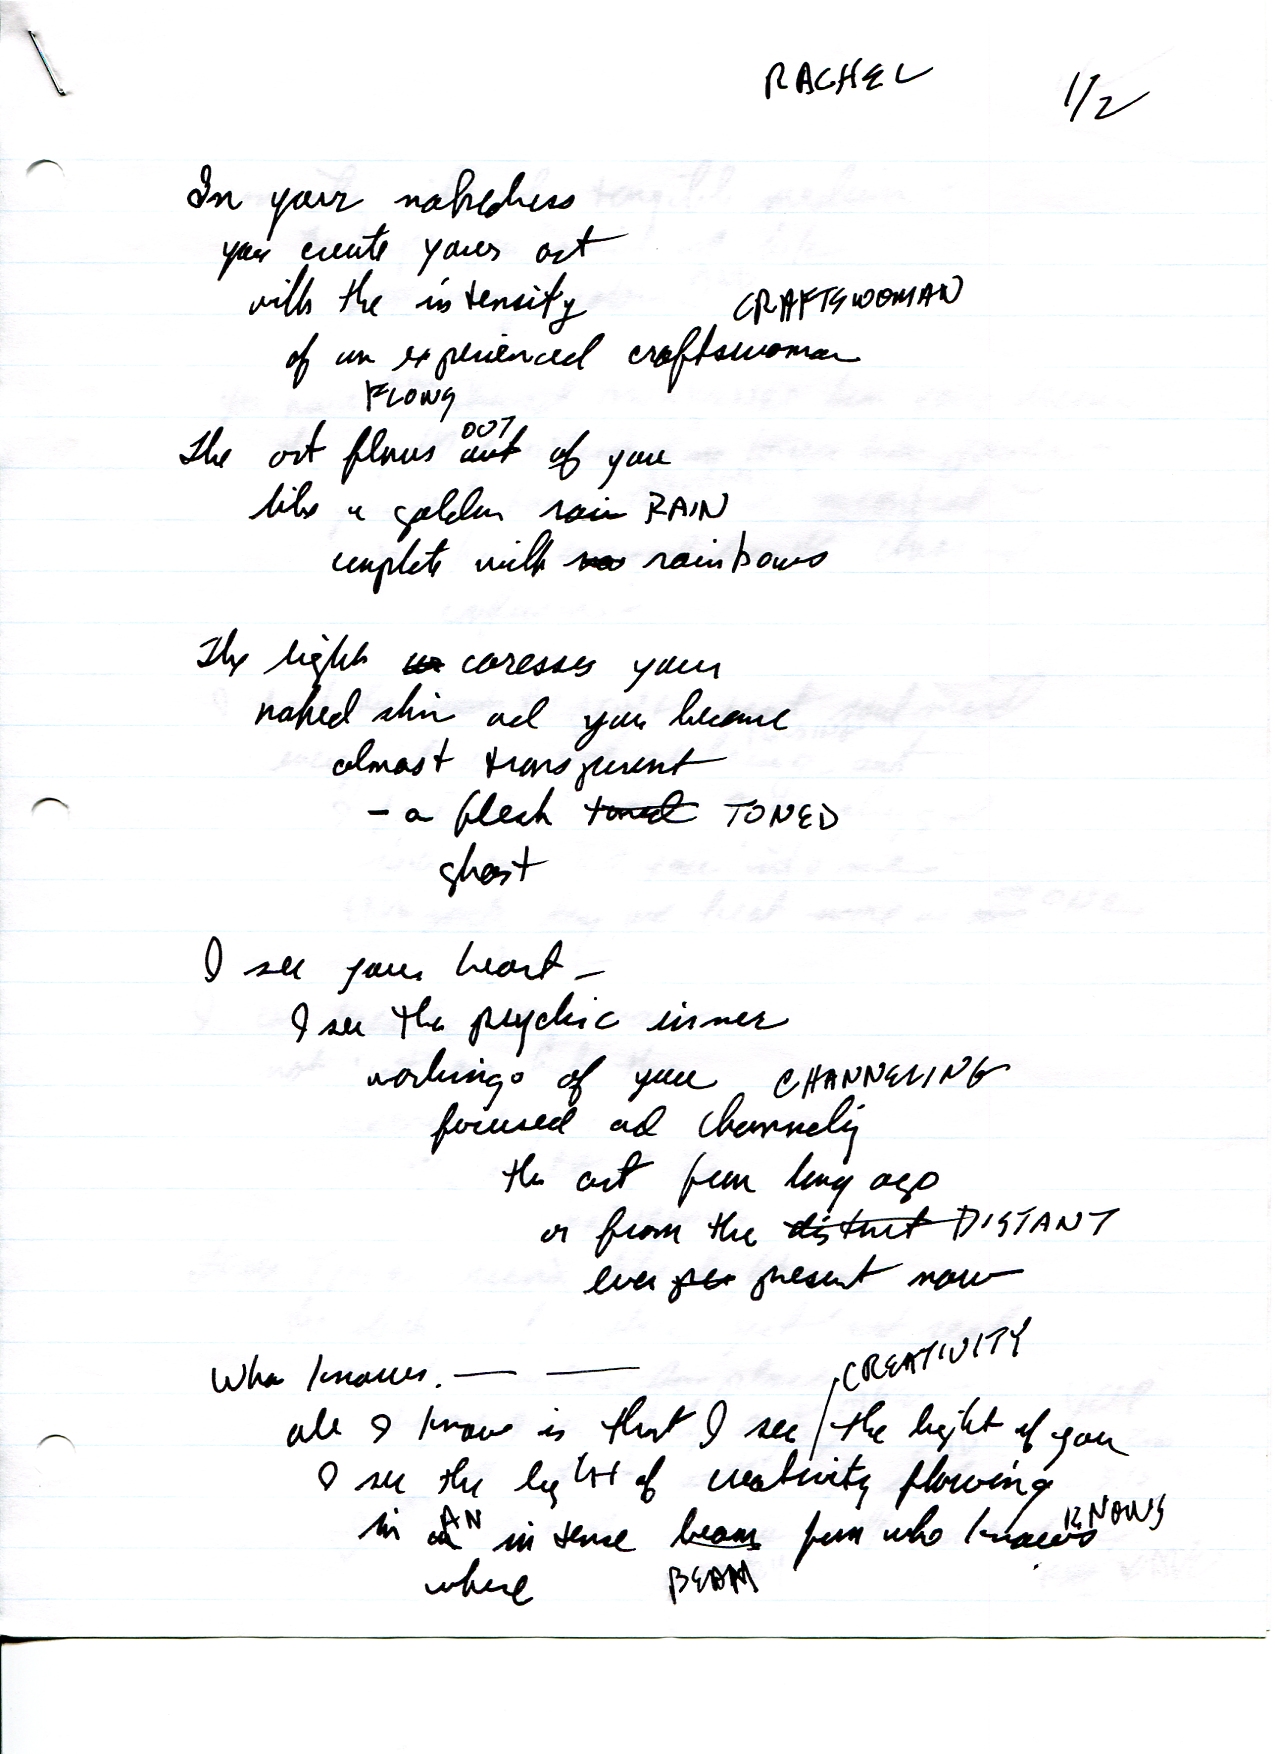 RACHEL 1/2
In your nakedness
you create your art
with the intensity
CRAFTSWOMAN
of an experienced craftswoman
FLOWS
OUT
The art flows out of you
like a golden rain RAIN
complete with ra rainbows
The light caresses your
naked skin and you become
almost transparent
- a flesh toned TONED
ghost
I see your heart -
I see the psychic inner
workings of you CHANNELING
focused and channeling
the art from long ago
or from the distant DISTANT
ever pre present now
CREATIVITY
Who knows. — —
all I know is that I see / the light of you
I see the light of creativity flowing
AN KNOWS
in an intense beam from who knows
where BEAM